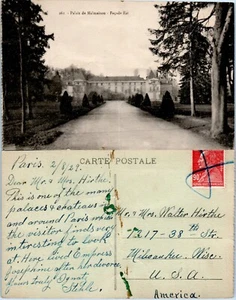 261 - Palais de Malmaison - Façade Est
Paris. 2/8/29.
CARTE POSTALE
Dear Mr. & Mrs. Hirthe:
This is one of the many
palaces & chateaus in
and around Paris
the visitor finds very
interesting to look
at. Here lived Empress
Josephine after her divorce.
Yours truly
Mr. & Mrs. Walter Hirthe
7217 - 38th Str.
Milwaukee - Wisc.
U. S. A.
America